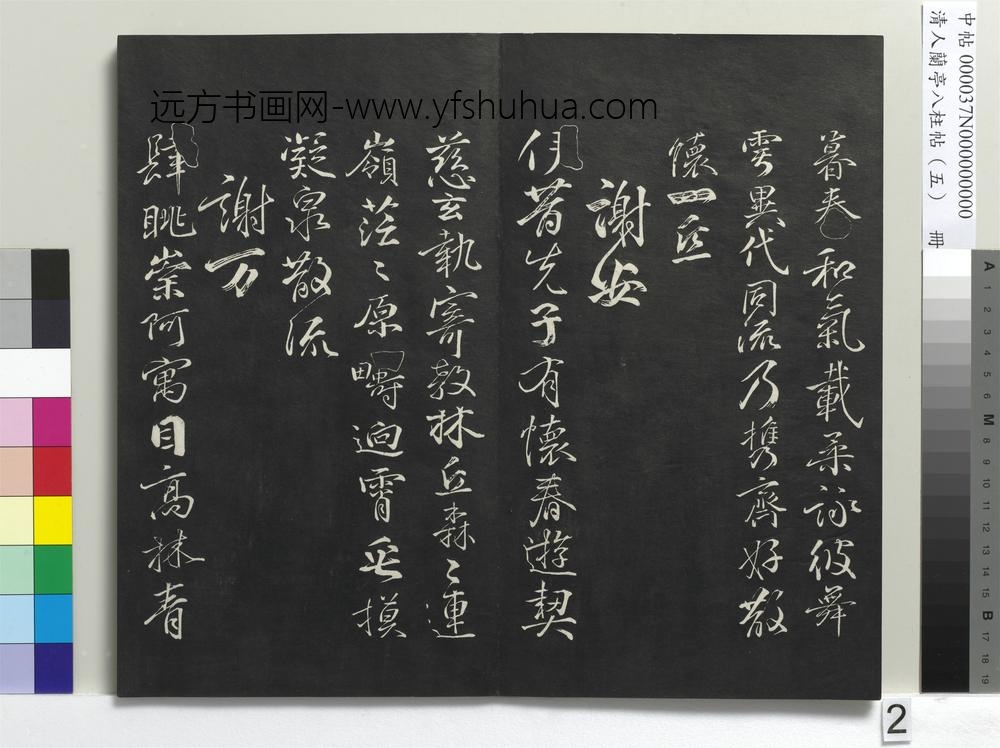 暮春和氣載柔詠彼舞
雩異代同流乃携齊好散
懷一丘
謝安
伊昔先子有懷春遊契
慈言執寄敖林丘森〻連
嶺茫〻原疇逈霄垂摸
凝泉散流
謝万
肆眺崇阿寓目高林青
远方书画网-www.yfshuhua.com
中帖 000037N000000000
清人蘭亭八柱帖（五） 冊
A 1 2 3 4 5 6 M 8 9 10 11 12 13 14 15 B 17 18 19
2